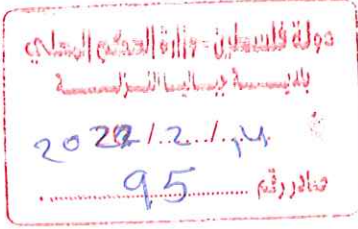 دولة فلسطين - وزارة الحكم المحلي
بلديـــة جباليا النـــزلـــة
2022/2/14
صادر رقم 95